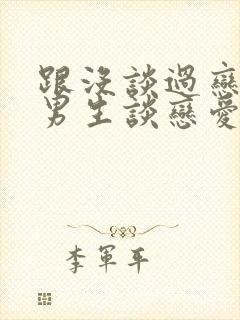 跟沒談過戀
男生談戀愛
李軍平